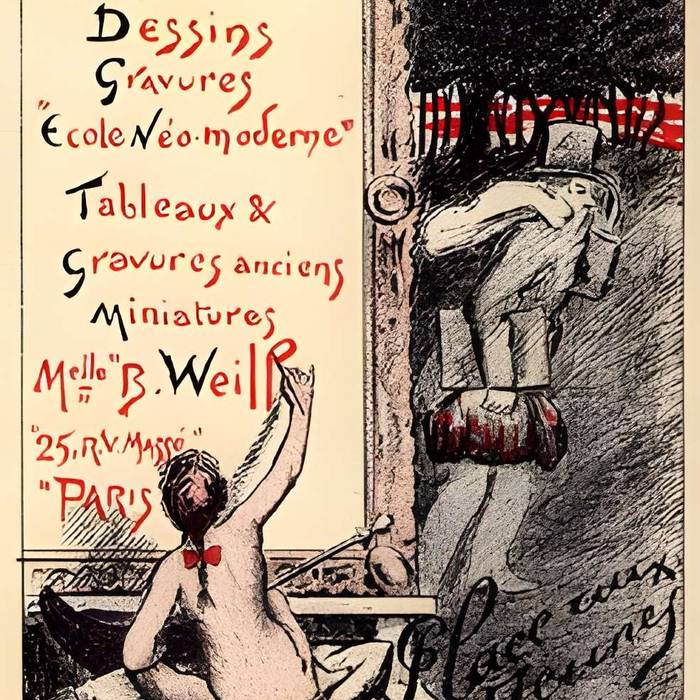 Dessins
Gravures
"Ecole Néo-moderne"
Tableaux &
Gravures anciens
Miniatures
Melle "B. Weill
"25, R.V. Massé"
"PARIS
Place aux
Jeunes